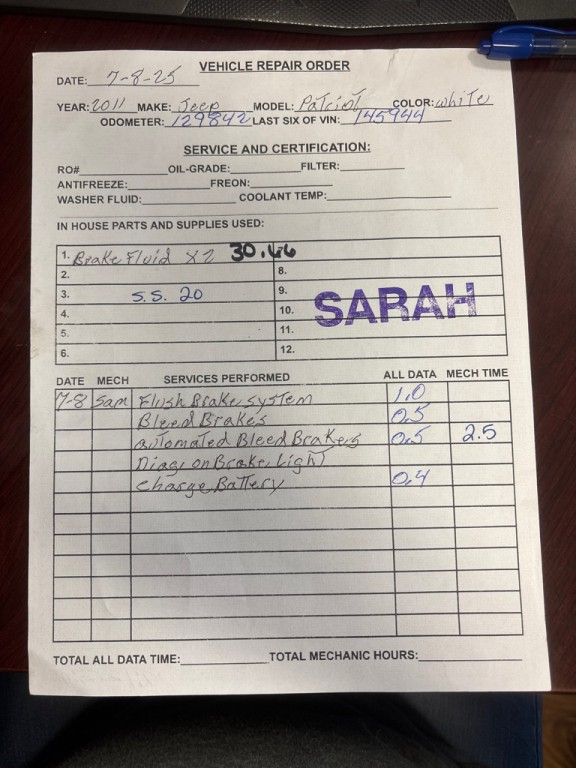 VEHICLE REPAIR ORDER
DATE: 7-8-25
YEAR: 2011 MAKE: Jeep MODEL: Patriot COLOR: white
ODOMETER: 129842 LAST SIX OF VIN: 145944
SERVICE AND CERTIFICATION:
RO# OIL-GRADE: FILTER:
ANTIFREEZE: FREON:
WASHER FLUID: COOLANT TEMP:
IN HOUSE PARTS AND SUPPLIES USED:
1. Brake Fluid X2 30.66
2. 8.
3. S.S. 20 9.
4. 10. SARAH
5. 11.
6. 12.
DATE MECH SERVICES PERFORMED ALL DATA MECH TIME
7-8 Sam Flush Brake System 1.0
Bleed Brakes 0.5
automated Bleed Brakes 0.5 2.5
Diag on Brake Light
Charge Battery 0.4
TOTAL ALL DATA TIME: TOTAL MECHANIC HOURS: